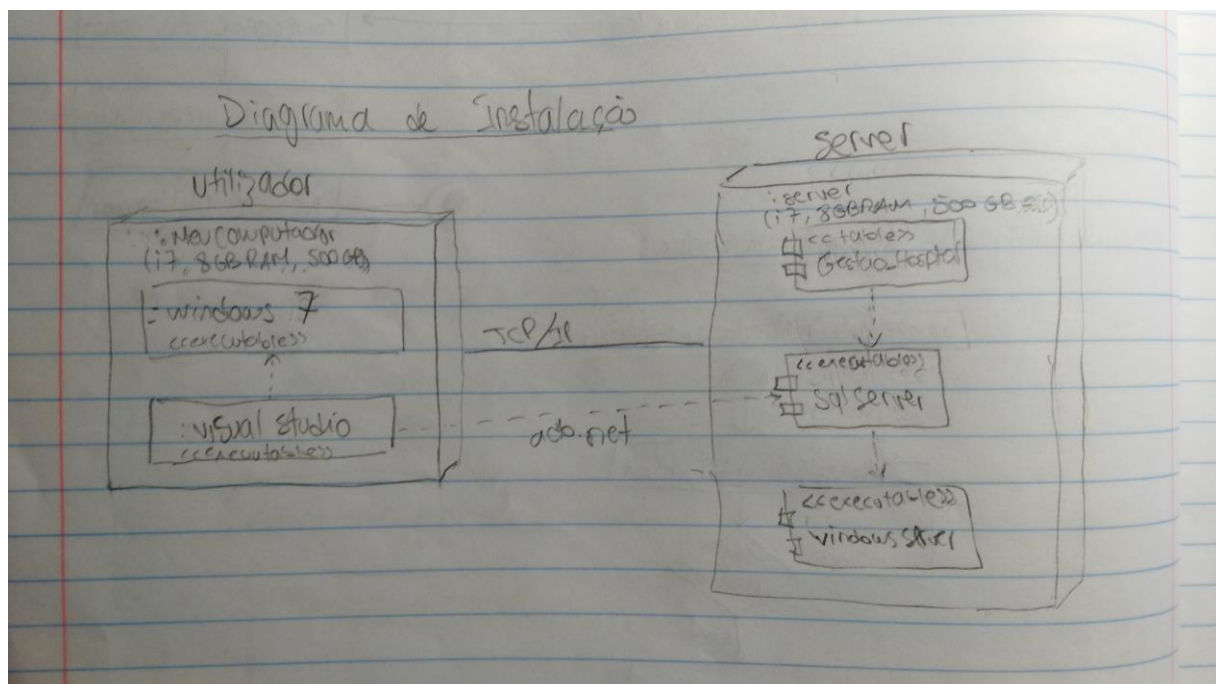 Diagrama de Instalação
utilizador
: Meu computador
(i7, 8GB RAM, 500 GB)
: windows 7
<<executable>>
: visual studio
<<executable>>
TCP/IP
ado.net
server
: server
(i7, 8GB RAM, 500 GB SSD)
<<table>>
Gestao_Hospital
<<executable>>
sql server
<<executable>>
windows server